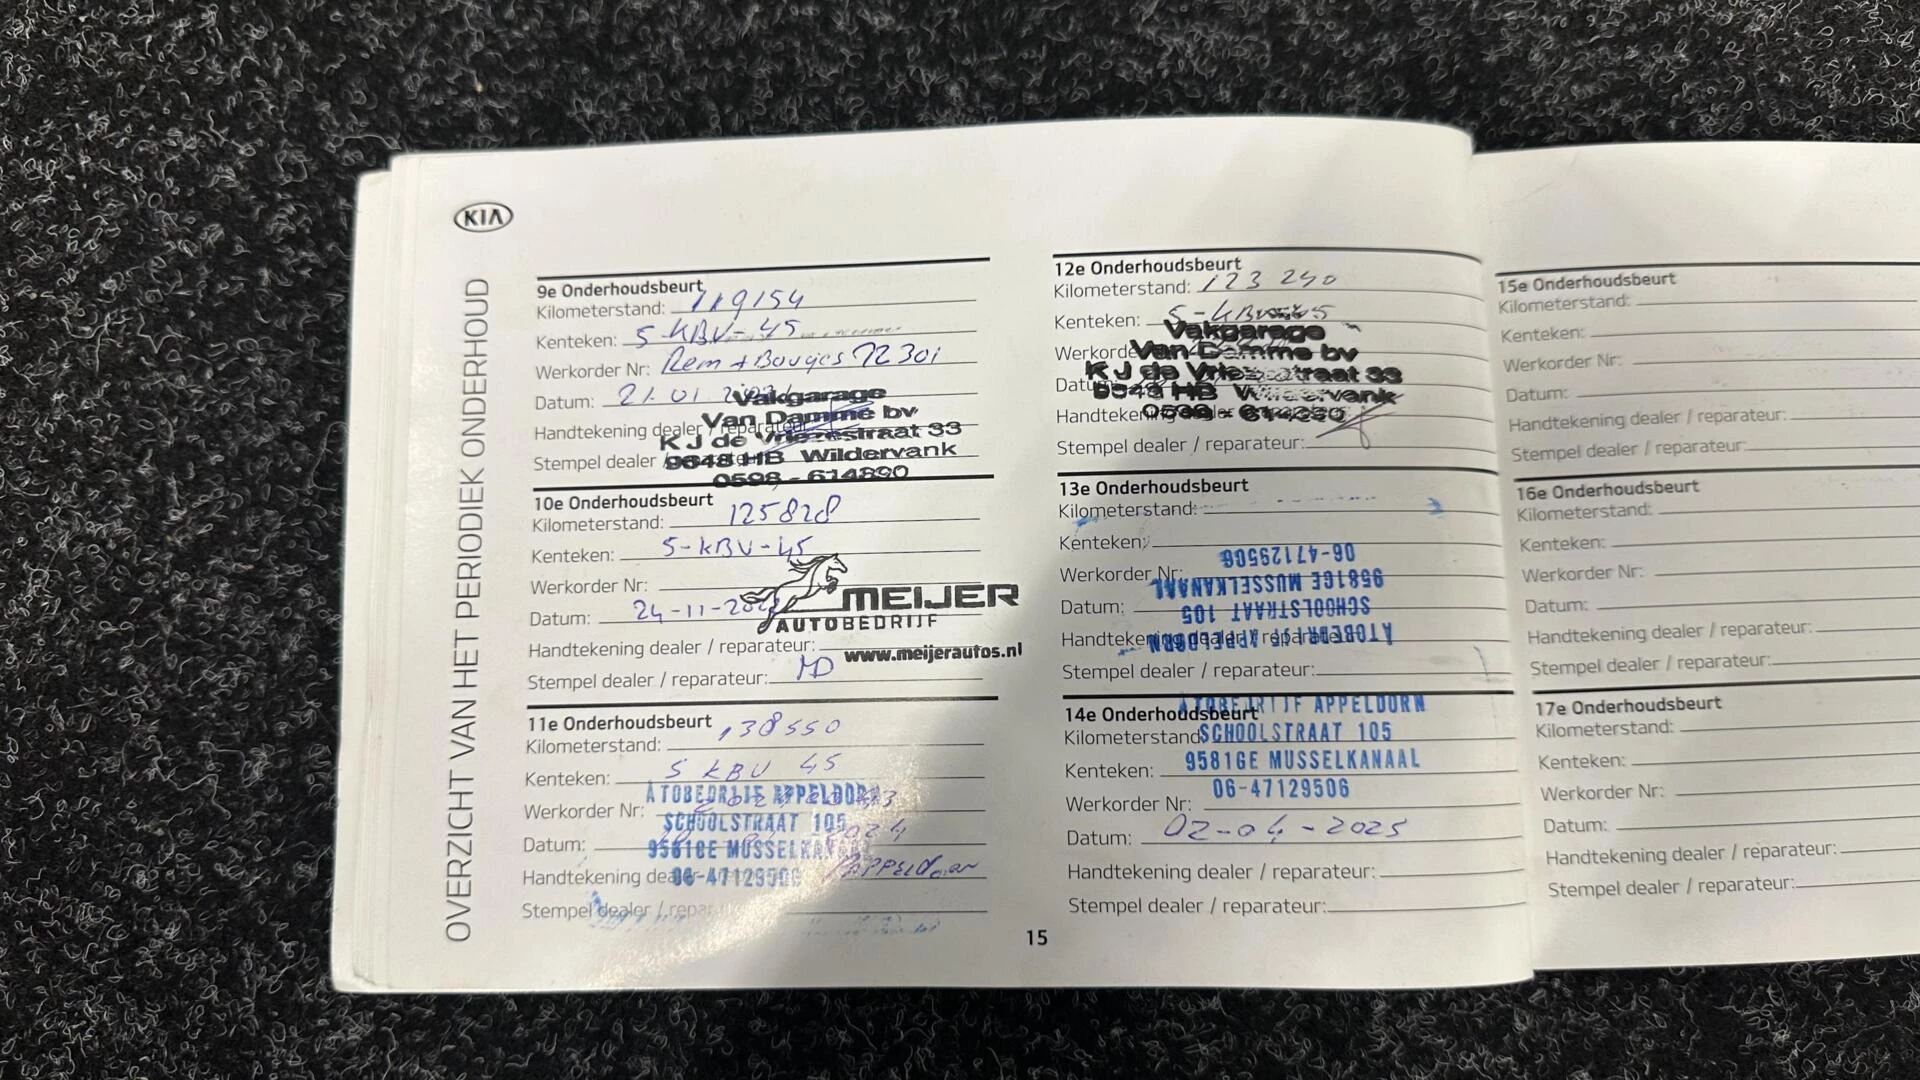 KIA
OVERZICHT VAN HET PERIODIEK ONDERHOUD
9e Onderhoudsbeurt
Kilometerstand: 119154
Kenteken: 5-KBV-45
Werkorder Nr: Rem + Bougies 72301
Datum: 21.01
Handtekening dealer / reparateur
Stempel dealer
Vakgarage
Van Damme bv
K J de Vriezestraat 33
9648 HB Wildervank
0598 - 614890
10e Onderhoudsbeurt
Kilometerstand: 125828
Kenteken: 5-KBV-45
Werkorder Nr:
Datum: 24-11-
Handtekening dealer / reparateur:
Stempel dealer / reparateur: MD
MEIJER
AUTOBEDRIJF
www.meijerautos.nl
11e Onderhoudsbeurt
Kilometerstand: 138550
Kenteken: 5 KBV 45
Werkorder Nr:
Datum: 2024
Handtekening dea Appeldoorn
Stempel dealer / repar
ATOBEDRIJF APPELDORN
SCHOOLSTRAAT 105
9581GE MUSSELKANAAL
06-47129506
12e Onderhoudsbeurt
Kilometerstand: 123 240
Kenteken: 5-KBV-45
Werkorde
Datu
Handtekening
Stempel dealer / reparateur:
Vakgarage
Van Damme bv
K J de Vriezestraat 33
9648 HB Wildervank
0598 - 614890
13e Onderhoudsbeurt
Kilometerstand:
Kenteken:
Werkorder Nr:
Datum:
Handtekening dealer / reparateur
Stempel dealer / reparateur:
ATOBEDRIJF APPELDORN
SCHOOLSTRAAT 105
9581GE MUSSELKANAAL
06-47129506
14e Onderhoudsbeurt
Kilometerstand
Kenteken:
Werkorder Nr:
Datum: 02-04-2025
Handtekening dealer / reparateur:
Stempel dealer / reparateur:
ATOBEDRIJF APPELDORN
SCHOOLSTRAAT 105
9581GE MUSSELKANAAL
06-47129506
15
15e Onderhoudsbeurt
Kilometerstand:
Kenteken:
Werkorder Nr:
Datum:
Handtekening dealer / reparateur:
Stempel dealer / reparateur:
16e Onderhoudsbeurt
Kilometerstand:
Kenteken:
Werkorder Nr:
Datum:
Handtekening dealer / reparateur:
Stempel dealer / reparateur:
17e Onderhoudsbeurt
Kilometerstand:
Kenteken:
Werkorder Nr:
Datum:
Handtekening dealer / reparateur:
Stempel dealer / reparateur: